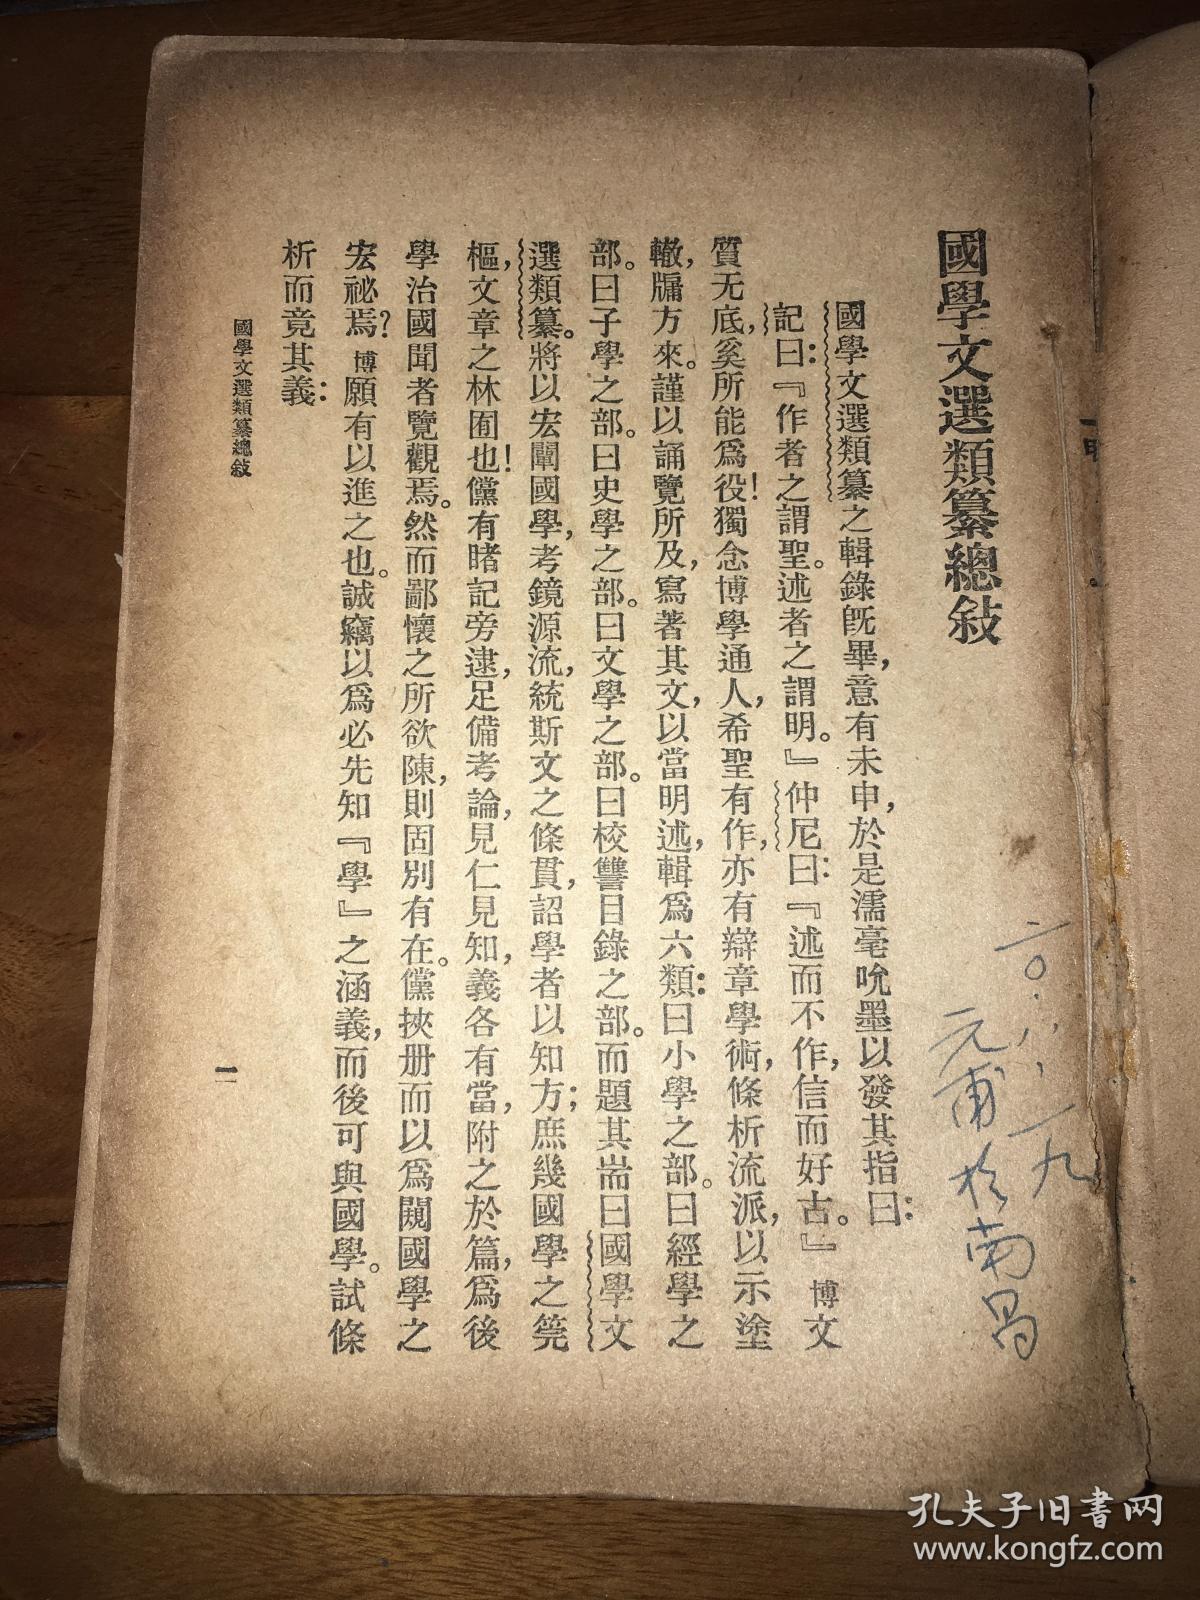 國學文選類纂總敍
國學文選類纂之輯錄旣畢，意有未申，於是濡毫吮墨以發其指曰：
記曰：『作者之謂聖。述者之謂明。』仲尼曰：『述而不作，信而好古。』博文
質无底，奚所能爲役！獨念博學通人，希聖有作，亦有辯章學術，條析流派，以示塗
轍，牖方來。謹以誦覽所及，寫著其文，以當明述，輯爲六類：曰小學之部。曰經學之
部。曰子學之部。曰史學之部。曰文學之部。曰校讐目錄之部。而題其耑曰國學文
選類纂。將以宏闡國學，考鏡源流，統斯文之條貫，詔學者以知方；庶幾國學之筦
樞，文章之林囿也！儻有睹記旁逮，足備考論，見仁見知，義各有當，附之於篇，爲後
學治國聞者覽觀焉。然而鄙懷之所欲陳，則固別有在。儻挾册而以爲闚國學之
宏祕焉？博願有以進之也。誠竊以爲必先知『學』之涵義，而後可與國學。試條
析而竟其義：
國學文選類纂總敍
一
二〇.八.一九
元甫於南昌
孔夫子旧书网
www.kongfz.com